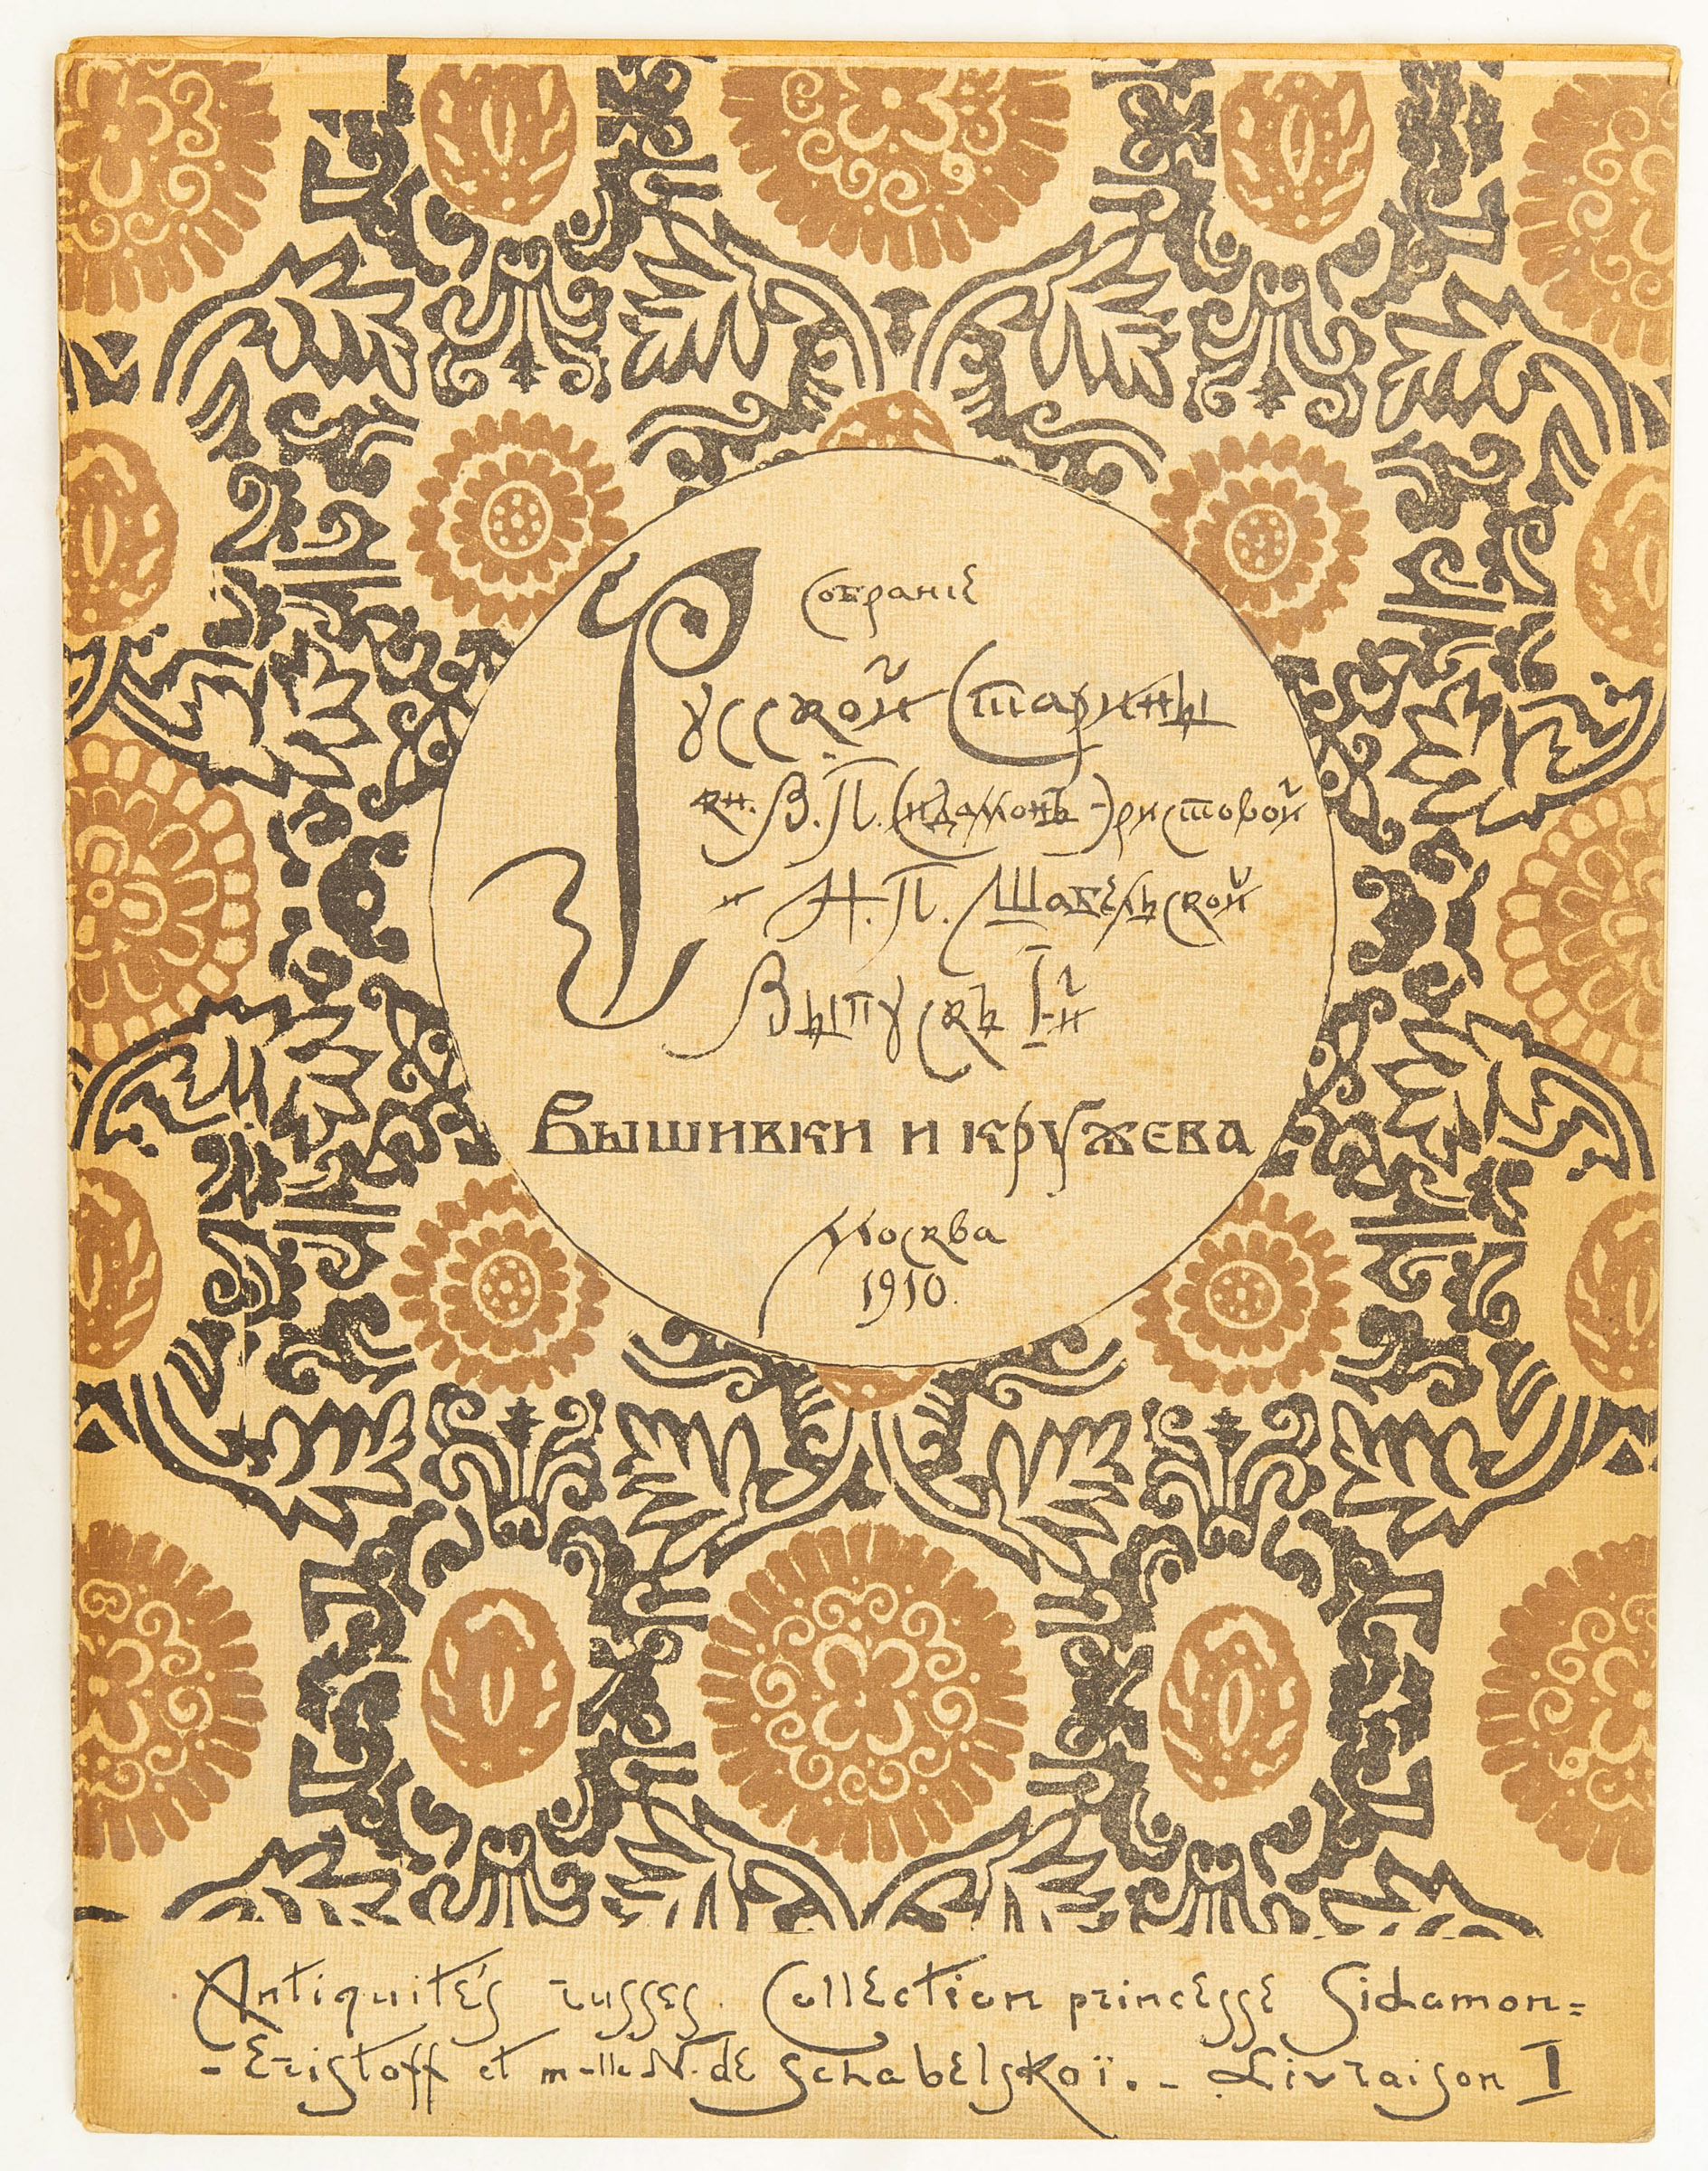 Собранiе
Русской Старины
кн. В. П. Сидамонъ-Эристовой
и Н. П. Шабельской
Выпускъ I-й
Вышивки и кружева
Москва
1910.
Antiquités russes. Collection princesse Sidamon=
-Eristoff et m-lle N. de Schabelskoï. - Livraison I